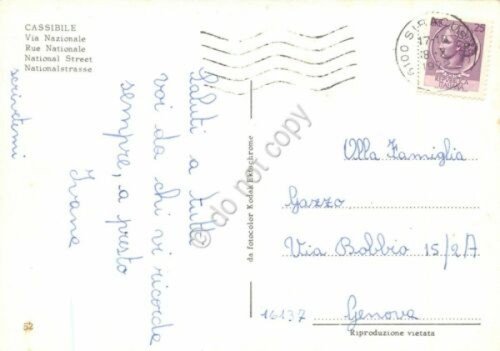 CASSIBILE
Via Nazionale
Rue Nationale
National Street
Nationalstrasse
Saluti a tutti
voi da chi vi ricorda
sempre, a presto
Ivana
scrivetemi
da fotocolor Kodak Ektachrome
25
Alla Famiglia
Gazzo
Via Bobbio 15/2A
16137 Genova
Riproduzione vietata
52
do not copy